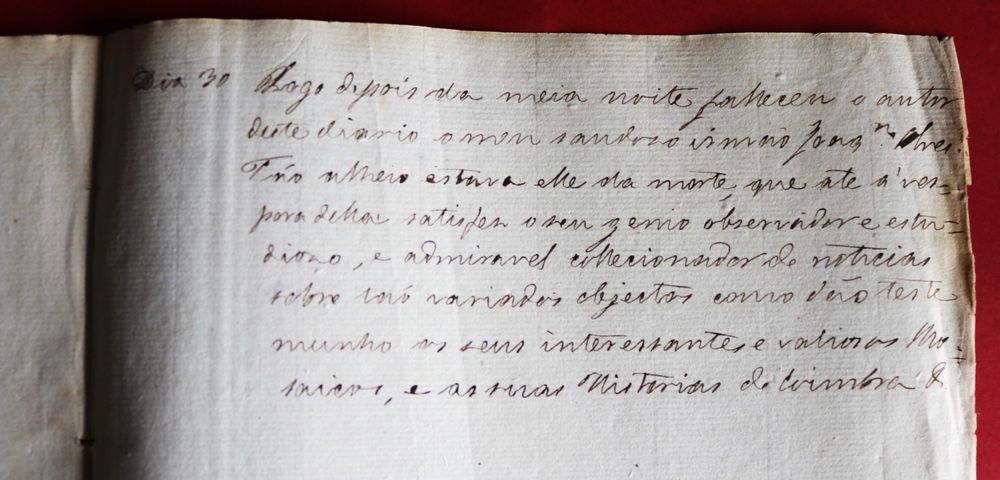 Dia 30 Logo depois da meia noite falleceu o autor
deste diario o meu saudoso irmão Joaqm. Alves.
Tão alheio estava elle da morte, que até á ves-
pora della satisfez o seu genio observador e estu-
dioso, e admiravel collecionador de noticias
sobre taõ variados objectos como dão teste
munho os seus interessantes e valiosos Mo-
saicos, e as suas Historias de Coimbra &